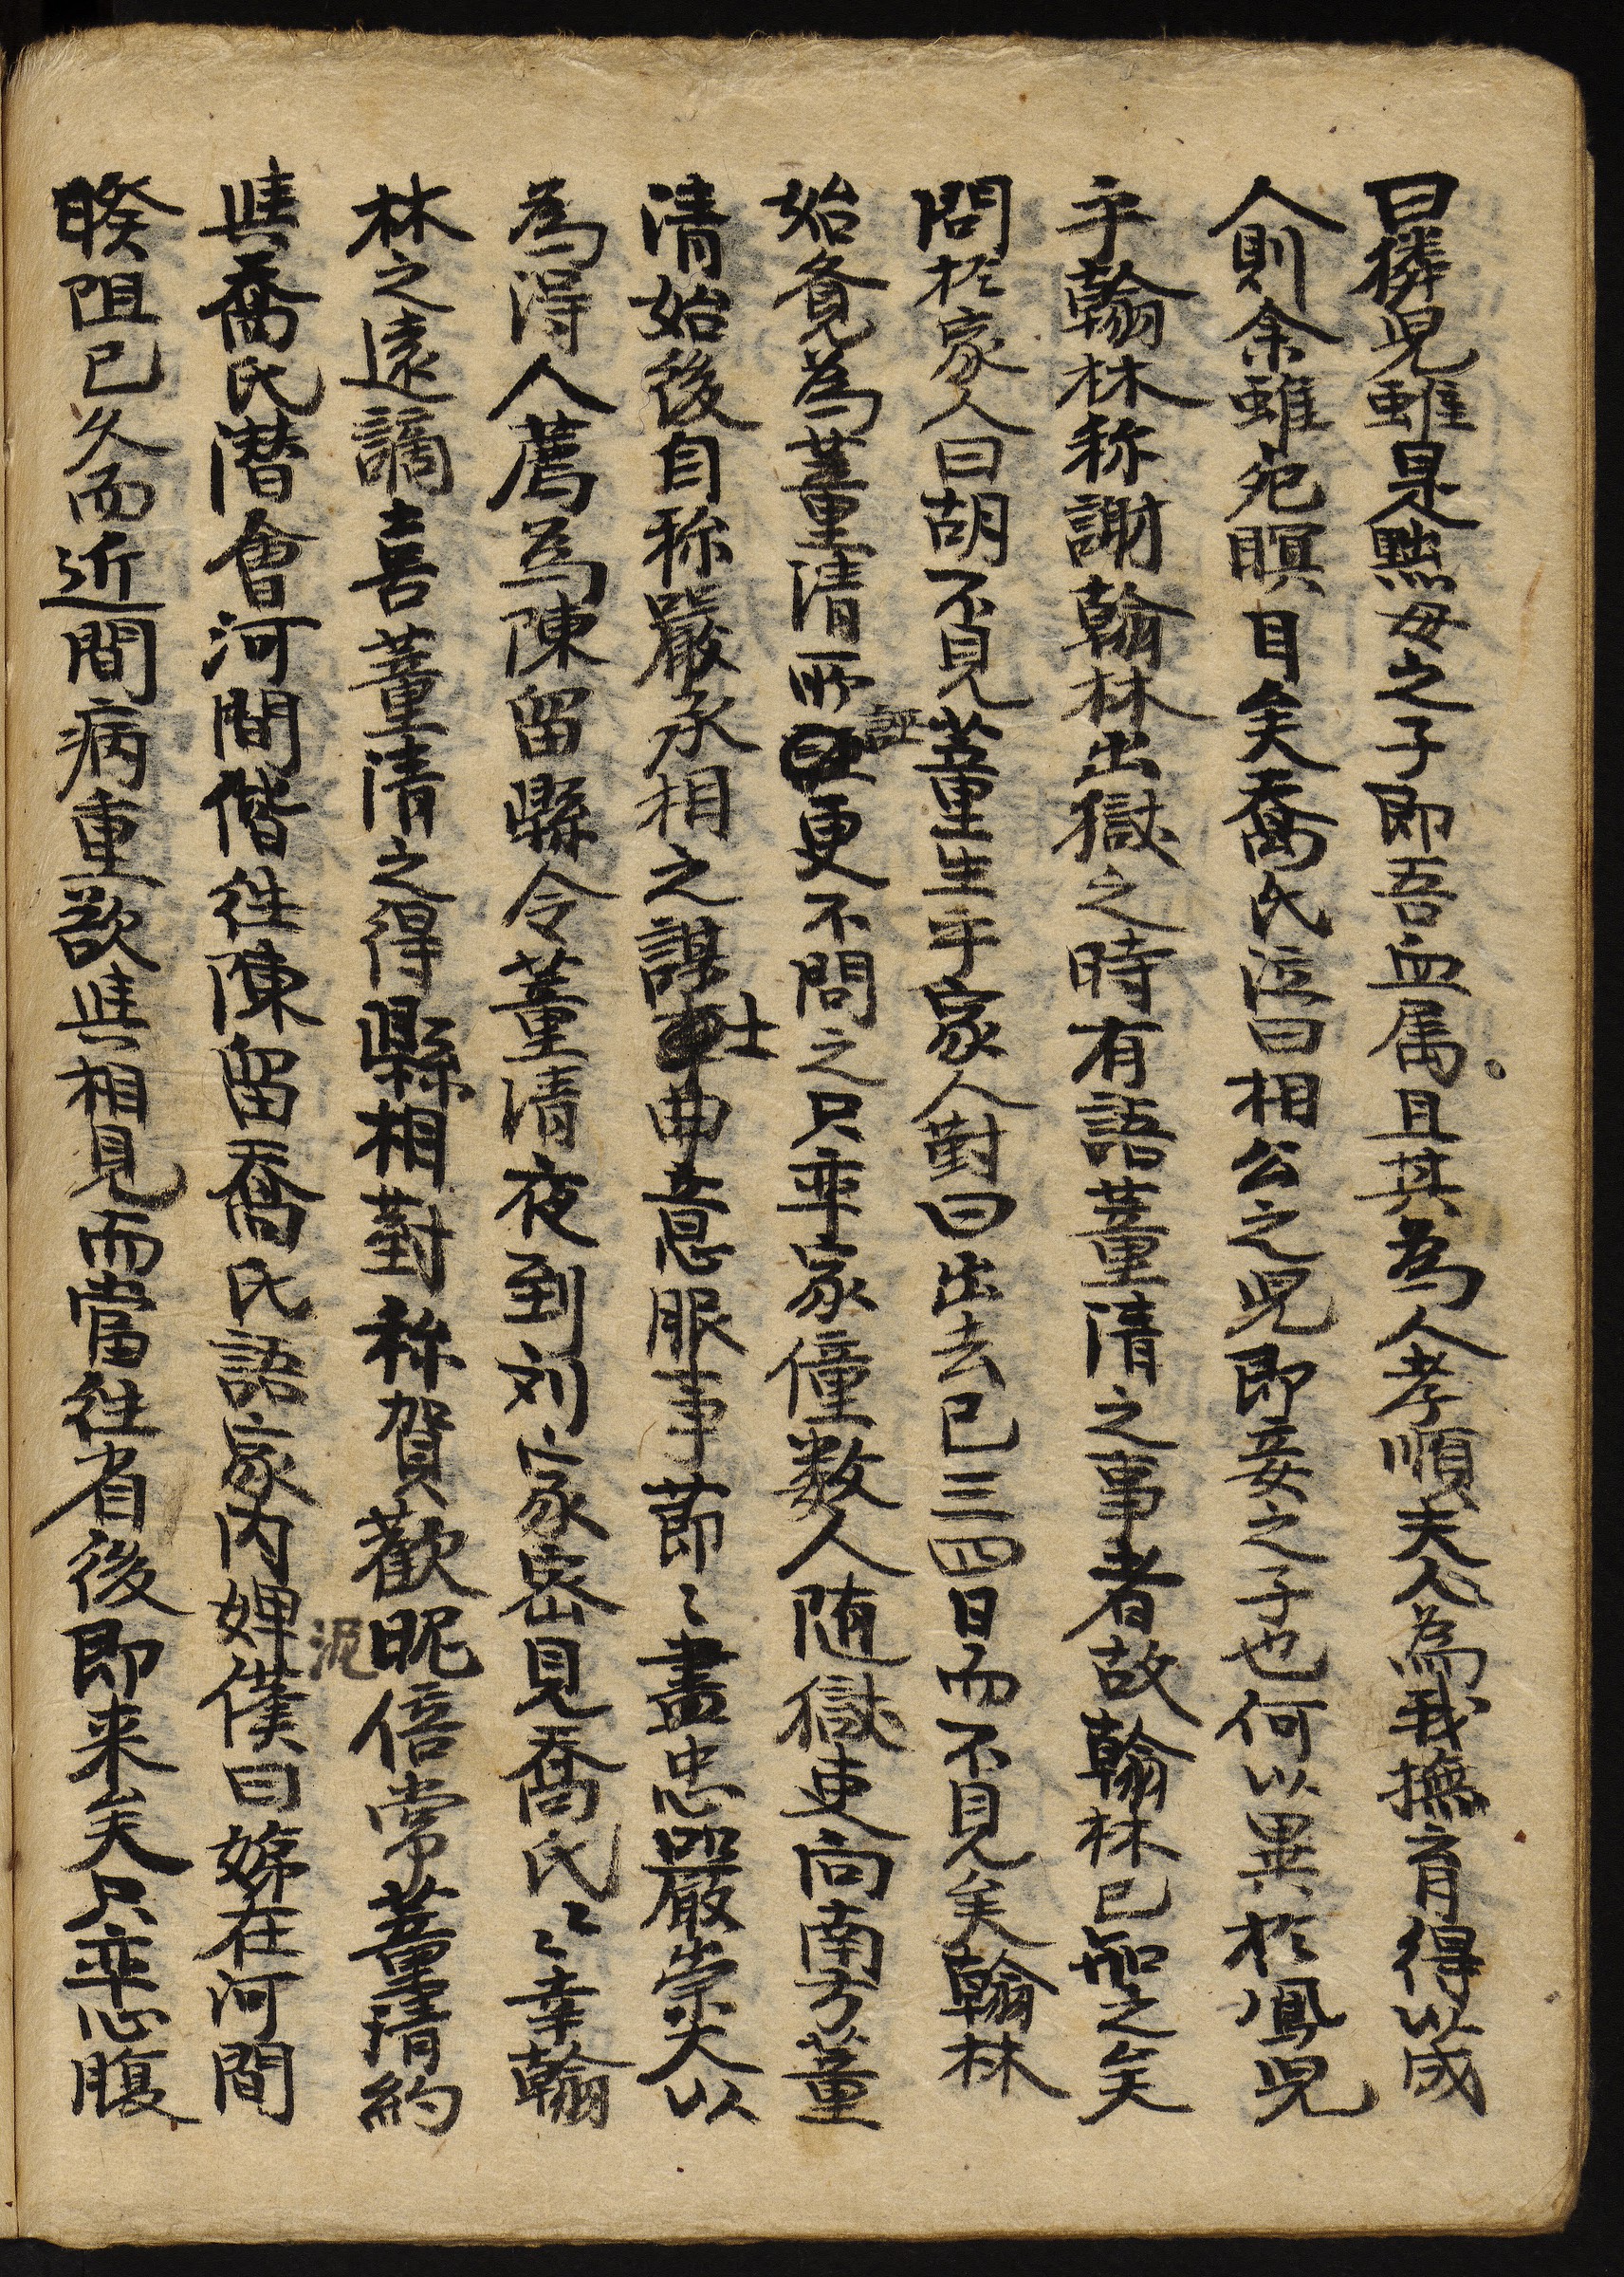 曰獜兒雖是黜母之子即吾血属且其為人孝順夫人為我撫育得以成
人則余雖死瞑目矣喬氏泣曰相公之兒即妾之子也何以異於鳳兒
乎翰林称謝翰林出獄之時有語董清之事者故翰林已知之矣
問於家人曰胡不見董生乎家人對曰出去已三四日而不見矣翰林
始覓為董清所誣更不問之只率家僮数人随獄吏向南方董
清始後自称嚴丞相之謀士曲意服事莭〻盡忠嚴崇大以
為得人薦為陳留縣令董清夜到刘家密見喬氏〻幸翰
林之遠謫喜董清之得縣相對称賀歡昵倍常董清約
泥
與喬氏潜會河間偕往陳留喬氏語家內婢僕曰娣在河間
睽阻已久而近間病重欲與相見而當往省後即来矣只率心腹